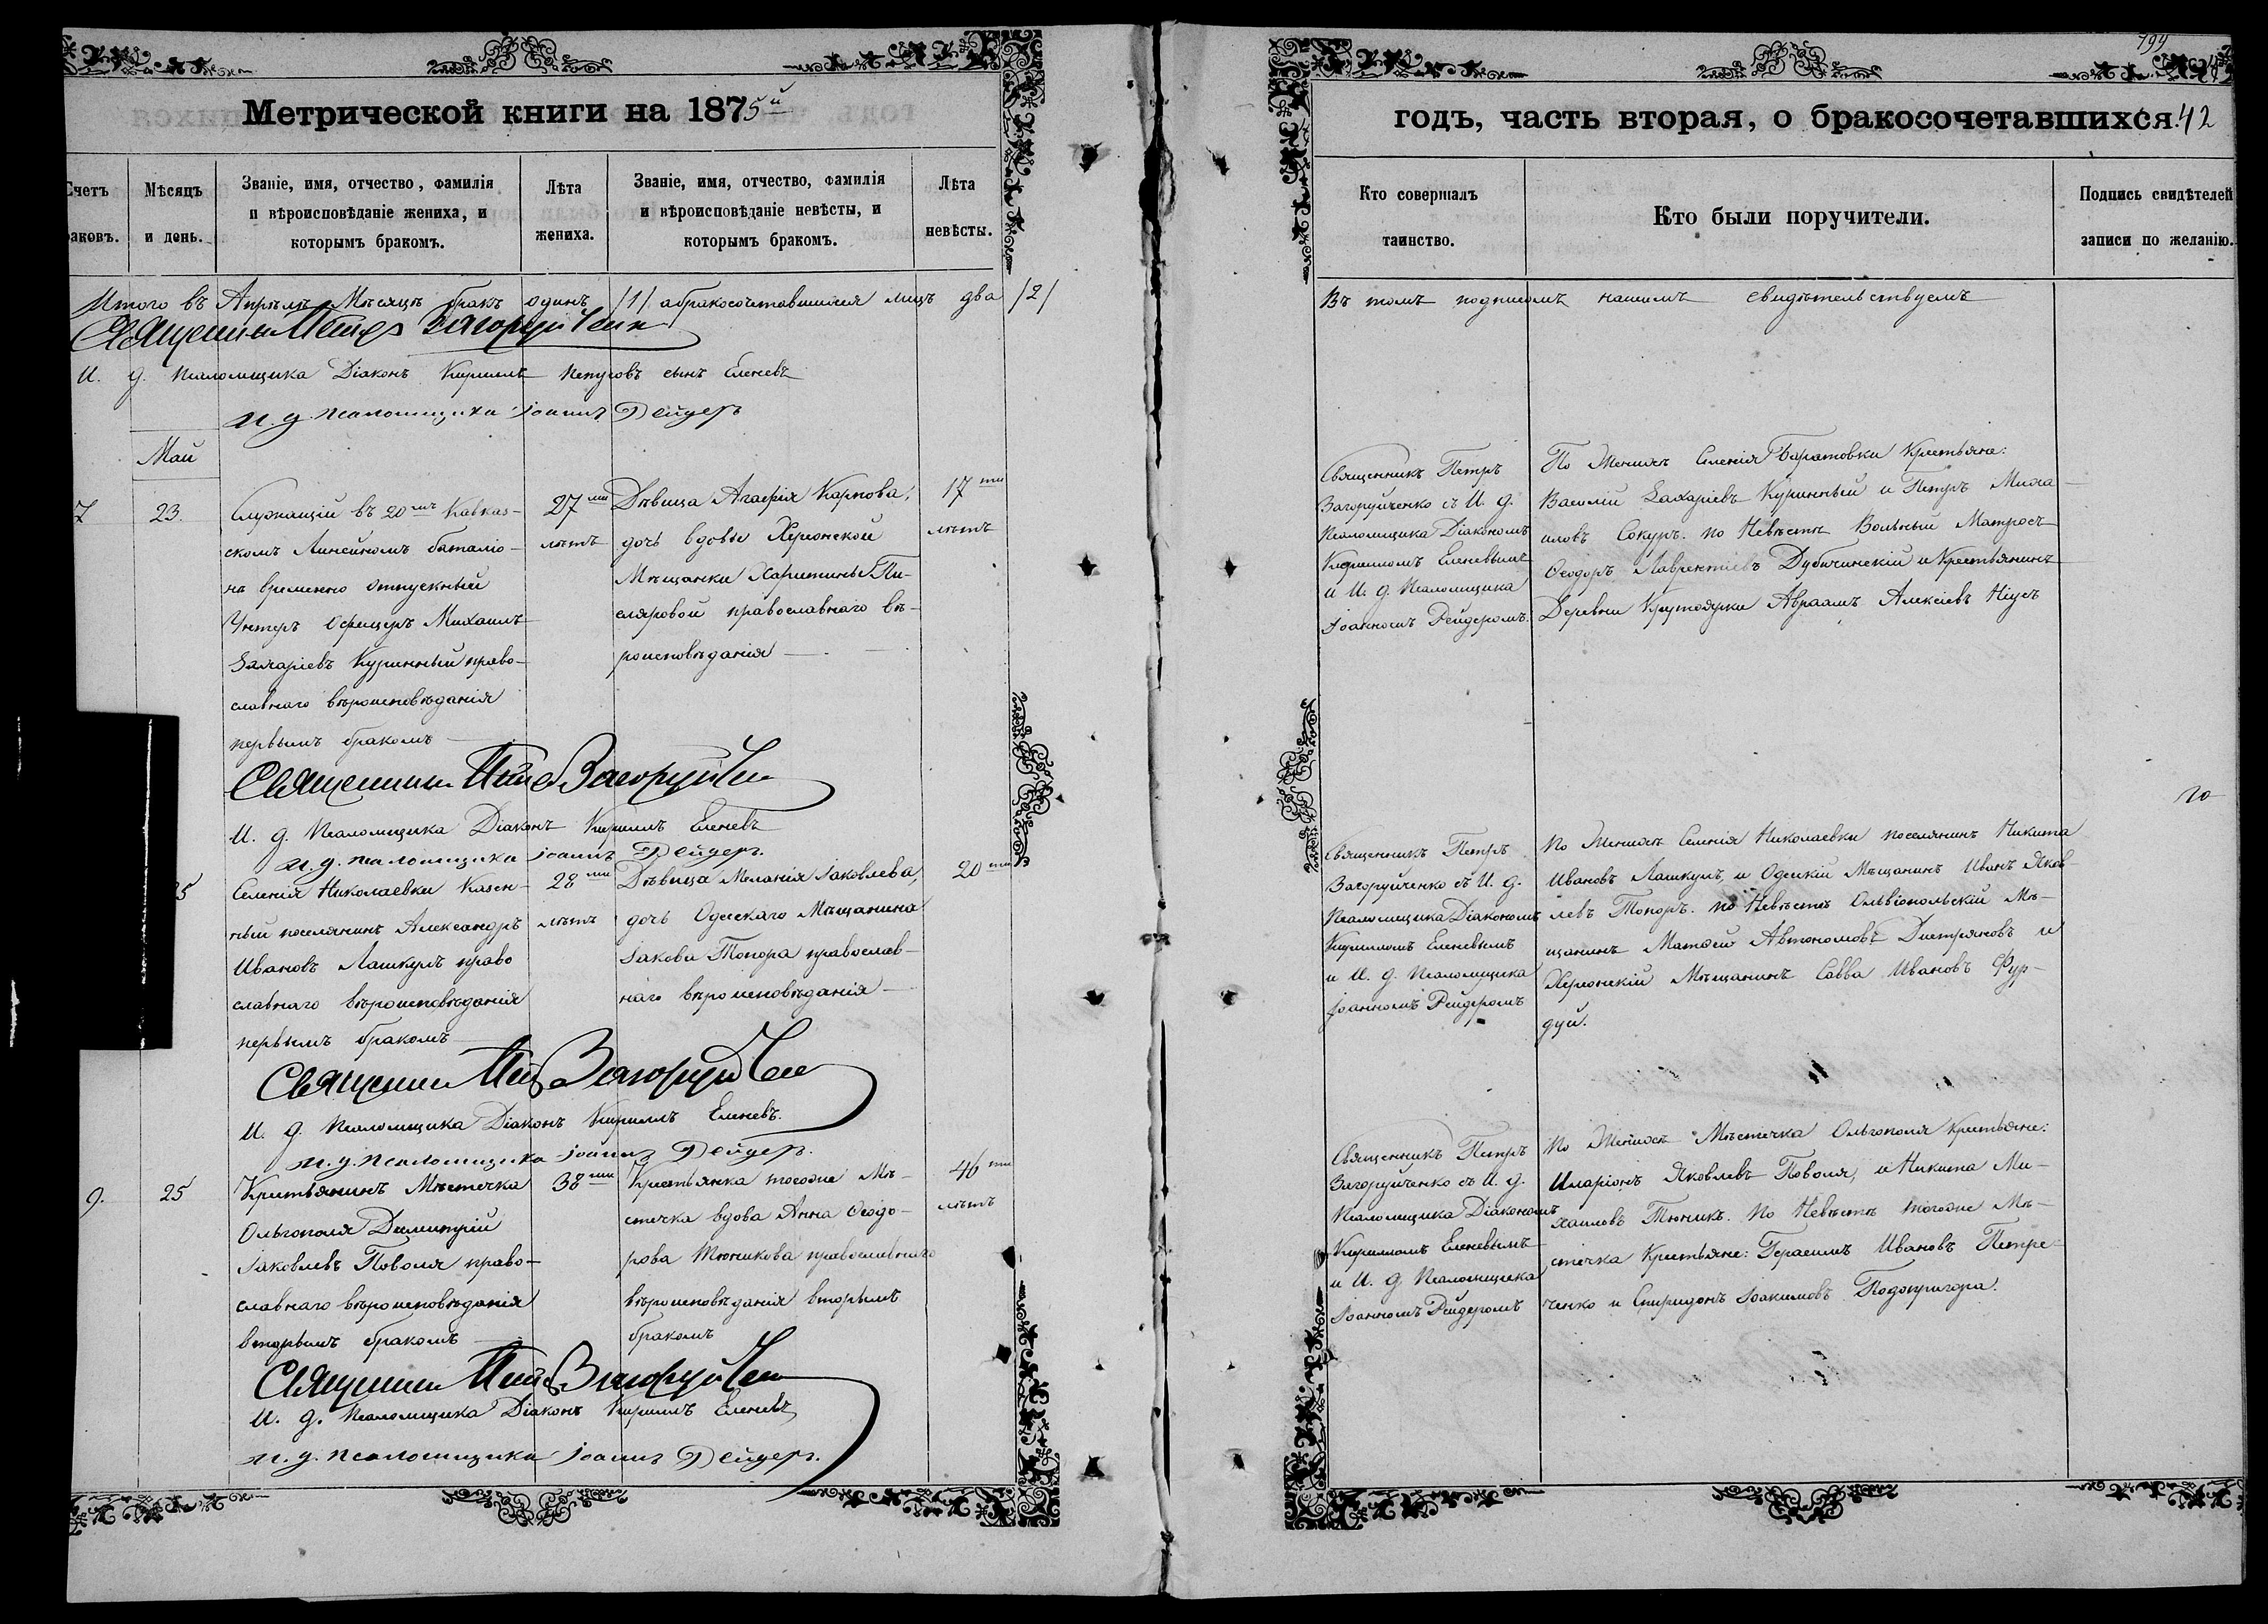 794
Метрической книги на 1875й
годъ, часть вторая, о бракосочетавшихся.
42
Счетъ
раковъ.
Мѣсяцъ
и день.
Званіе, имя, отчество, фамилія
и вѣроисповѣданіе жениха, и
которымъ бракомъ.
Лѣта
жениха.
Званіе, имя, отчество, фамилія
и вѣроисповѣданіе невѣсты, и
которымъ бракомъ.
Лѣта
невѣсты.
Кто совершалъ
таинство.
Кто были поручители.
Подпись свидѣтелей
записи по желанію.
Итого въ Апрѣлѣ Мѣсяцѣ бракъ одинъ /1/ а бракосочетавшихся лицъ два /2/
Въ томъ подписомъ нашимъ свидѣтельствуемъ
Священникъ Петръ Загоруйченко
И. д. Псаломщика Діаконъ Кириллъ сынъ Еленевъ
и. д. псаломщика Іоаннъ Рейдеръ
Май
7
23.
Служащій въ 20мъ Кавказ-
скомъ Линейномъ баталіо-
нѣ временно отпускный
Унтеръ Офицеръ Михаилъ
Захаріевъ Куринный право-
славнаго вѣроисповѣданія
первымъ бракомъ
27ми
лѣтъ
Дѣвица Агафія Карпова,
дочь вдовы Херсонской
Мѣщанки Харитины Пи-
сляровой православнаго вѣ-
роисповѣданія
17ти
лѣтъ
Священникъ Петръ
Загоруйченко съ И. д.
Псаломщика Діакономъ
Кирилломъ Еленевымъ
и И. д. Псаломщика
Іоанномъ Рейдеромъ.
По Женихѣ Селенія Баратовки Крестьяне:
Василій Захаріевъ Куринный и Петръ Миха
иловъ Сокуръ. по Невѣстѣ Вольный Матросъ
Ѳеодоръ Лаврентіевъ Дубичинскій и Крестьянинъ
Деревни Крутоярки Авраамъ Алексіевъ
Священникъ Петръ Загоруйченко
И. д. Псаломщика Діаконъ Кириллъ Еленевъ
и. д. псаломщика Іоаннъ Рейдеръ.
25
Селенія Николаевки Казен-
ный поселянинъ Александръ
Ивановъ Лашкулъ право
славнаго вѣроисповѣданія
первымъ бракомъ
28ми
лѣтъ
Дѣвица Меланія Іаковлева,
дочь Одесскаго Мѣщанина
Іакова Топора православ-
наго вѣроисповѣданія
20ти
Священникъ Петръ
Загоруйченко съ И. д.
Псаломщика Діакономъ
Кирилломъ Еленевымъ
и И. д. Псаломщика
Іоанномъ Рейдеромъ
По Женихѣ Селенія Николаевки поселянинъ Никита
Ивановъ Лашкулъ, и Одесскій Мѣщанинъ Иванъ Яков-
левъ Топоръ. по Невѣстѣ Ольвіопольскій Мѣ-
щанинъ Матѳей Автономовъ и
Херсонскій Мѣщанинъ Савва Ивановъ Фур-
дуй.
Священникъ Петръ Загоруйченко
И. д. Псаломщика Діаконъ Кириллъ Еленевъ.
и. д. псаломщика Іоаннъ Рейдеръ.
9.
25
Крестьянинъ Мѣстечка
Ольгополя Димитрій
Іаковлевъ Поволя право-
славнаго вѣроисповѣданія
вторымъ бракомъ
38ми
Крестьянка тогоже Мѣ-
стечка вдова Анна Ѳеодо-
рова Тюникова православнаго
вѣроисповѣданія вторымъ
бракомъ
46ти
лѣтъ
Священникъ Петръ
Загоруйченко съ И. д.
Псаломщика Діакономъ
Кирилломъ Еленевымъ
и И. д. Псаломщика
Іоанномъ Рейдеромъ
По Женихѣ Мѣстечка Ольгополя Крестьяне:
Иларіонъ Яковлевъ Поволя, и Никита Ми-
хаиловъ Тюникъ. По Невѣстѣ тогоже Мѣ-
стечка Крестьяне: Герасимъ Ивановъ Петре-
ченко и Спиридонъ Іоакимовъ Подопригора.
Священникъ Петръ Загоруйченко
И. д. Псаломщика Діаконъ Кириллъ Еленевъ
и. д. псаломщика Іоаннъ Рейдеръ.